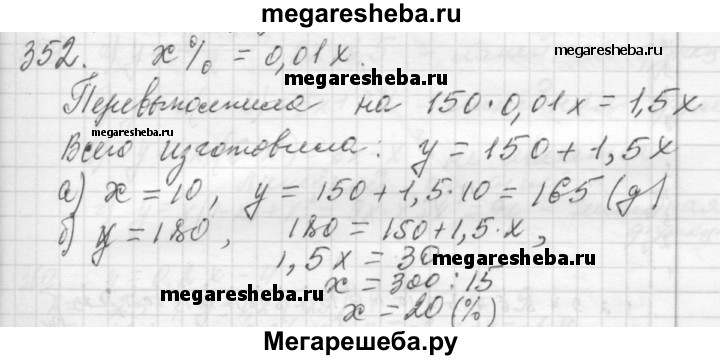 megaresheba.ru
352. x% = 0,01x.
megaresheba.ru
megaresheba.ru
Перевыполнила на 150·0,01x = 1,5x
megaresheba.ru
Всего изготовила: y = 150 + 1,5x
а) x = 10, y = 150 + 1,5·10 = 165 (д)
б) y = 180, 180 = 150 + 1,5·x,
1,5x = 30
megaresheba.ru
x = 300 : 15
megaresheba.ru
x = 20 (%)
Мегарешеба.ру